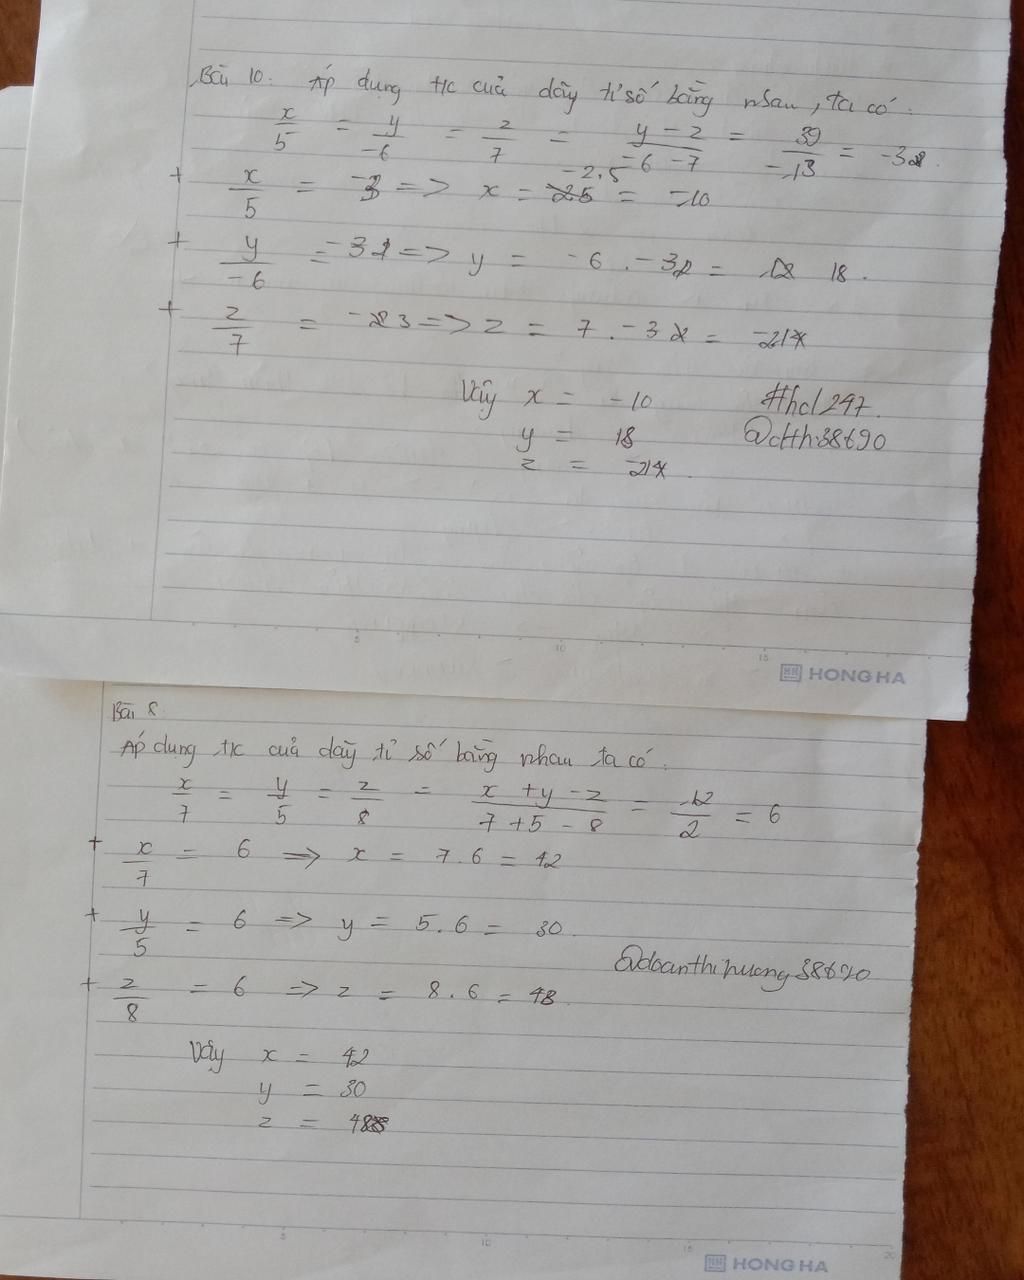 Bài 10: Áp dụng t/c của dãy tỉ số bằng nhau, ta có:
x/5 = y/-6 = z/7 = y - z/-6 - 7 = 39/-13 = -3
+ x/5 = -3 => x = -2.5 = -10
+ y/-6 = -3 => y = -6 . -3 = 18.
+ z/7 = -3 => z = 7 . -3 = -21
Vậy x = -10
#hcl297.
y = 18
@dtth38690
z = -21
HONG HA
5 10 15
Bài 8.
Áp dụng t/c của dãy tỉ số bằng nhau ta có:
x/7 = y/5 = z/8 = x + y - z/7 + 5 - 8 = 12/2 = 6
+ x/7 = 6 => x = 7.6 = 42
+ y/5 = 6 => y = 5.6 = 30.
@doanthihuong38690
+ z/8 = 6 => z = 8.6 = 48
Vậy x = 42
y = 30
z = 48
5 10 15 20
HONG HA